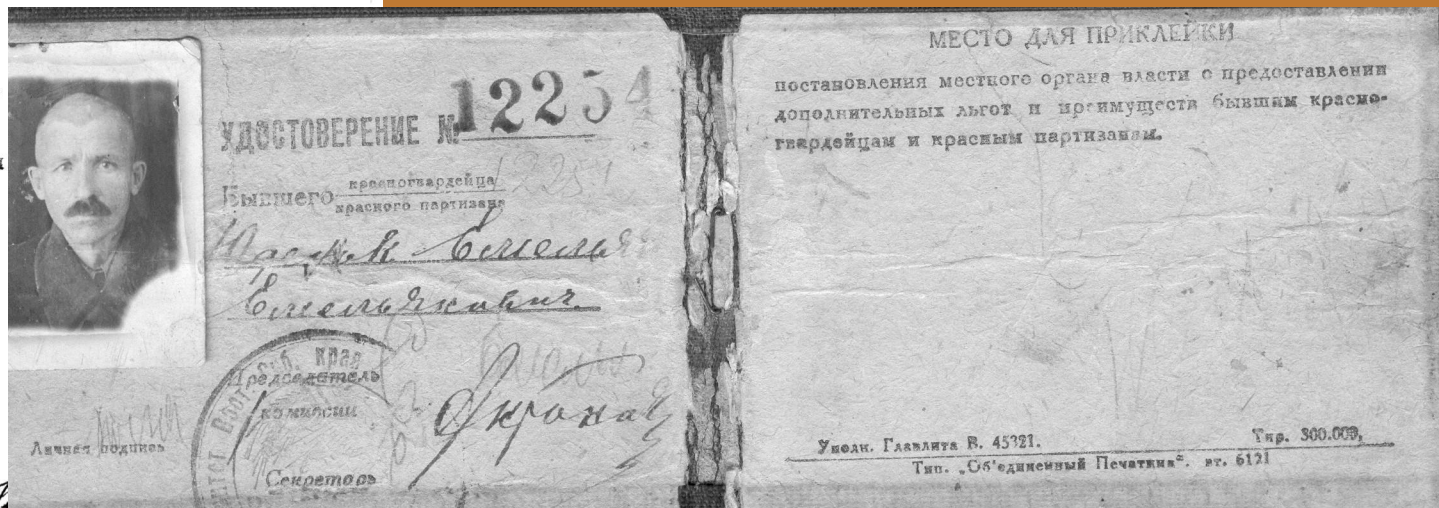 УДОСТОВЕРЕНИЕ № 12254
12251
Бывшего красногвардейца
красного партизана
Емелья
Емельянович
Вост. Сиб. края
Председатель
комиссии
Секретарь
Личная подпись
МЕСТО ДЛЯ ПРИКЛЕЙКИ
постановления местного органа власти о предоставлении
дополнительных льгот и преимуществ бывшим красно-
гвардейцам и красным партизанам.
Уполн. Главлита В. 45321.
Тир. 300.000,
Тип. „Об'единенный Печатник“. зт. 6121